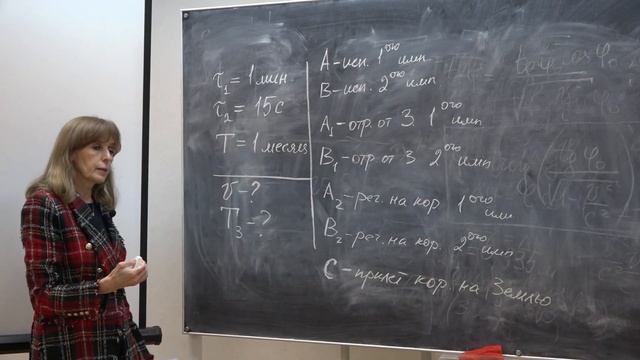 τ₁ = 1 мин
τ₂ = 15 с
T = 1 месяц
v - ?
T₃ - ?
A - исп. 1ого имп.
B - исп. 2ого имп
A₁ - отр. от З. 1ого имп
B₁ - отр. от З 2ого имп
A₂ - рег. на кор. 1ого имп
B₂ - рег. на кор. 2ого имп
C - прилёт кор. на Землю